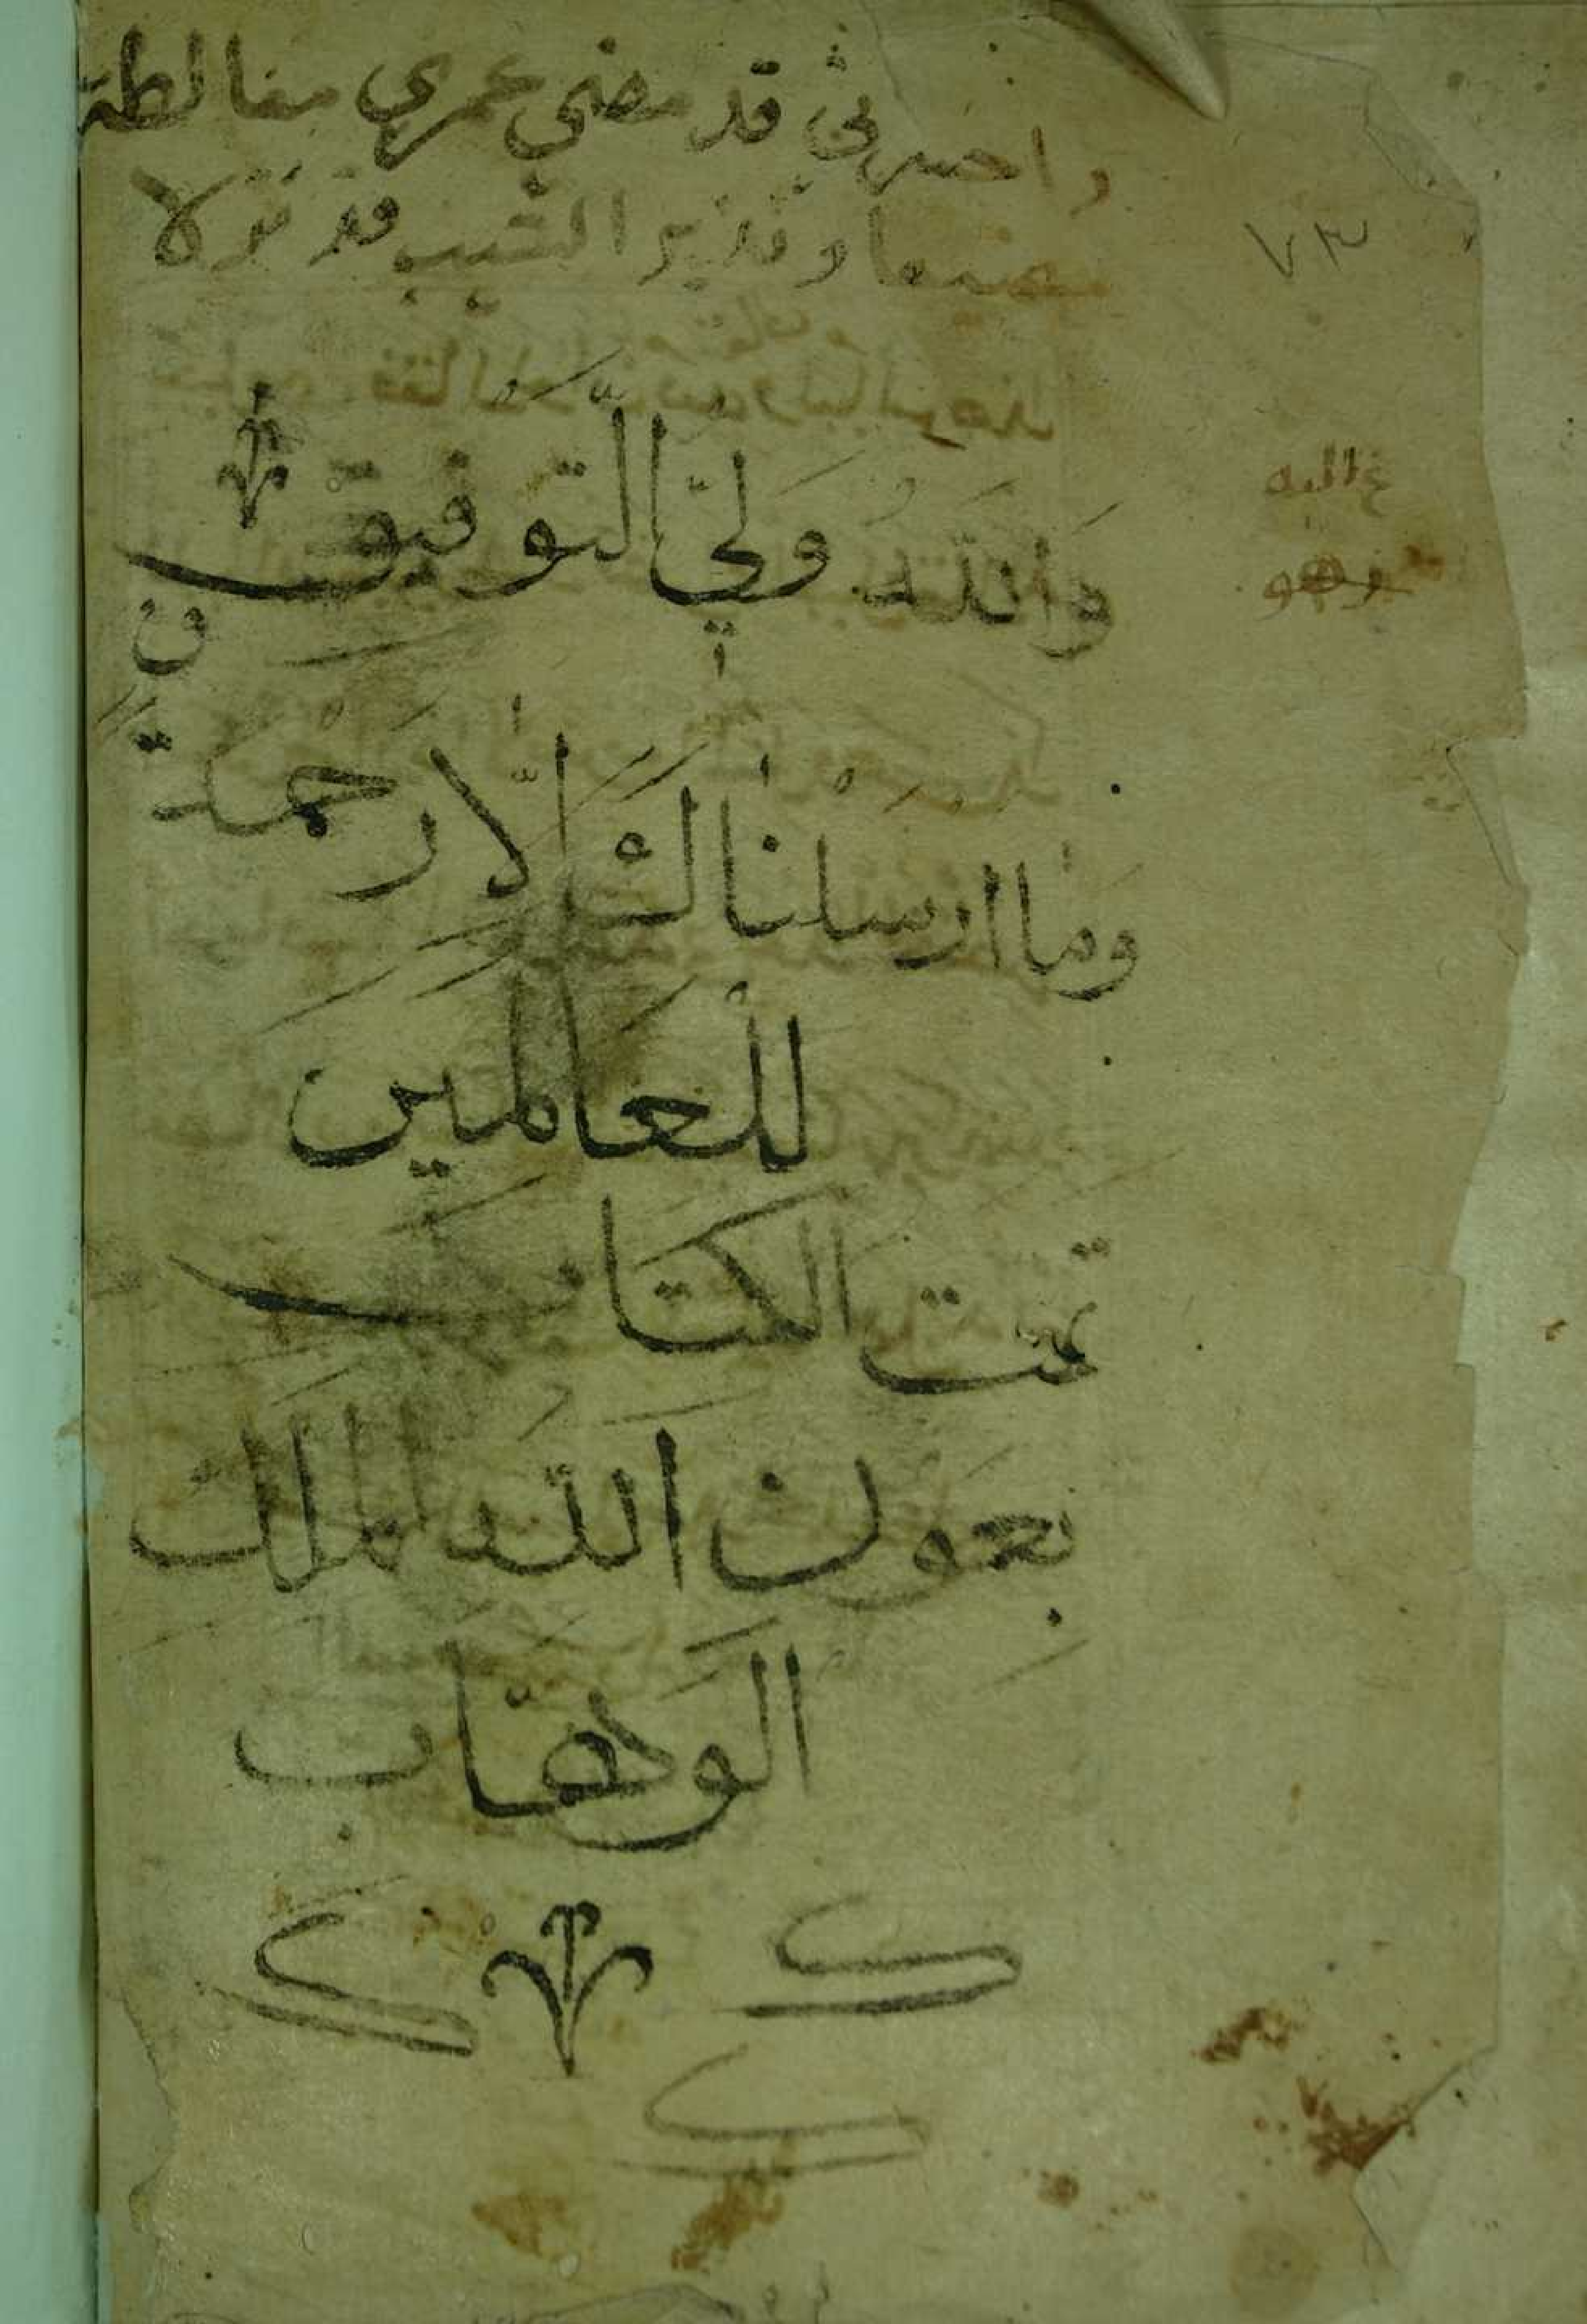 واحسرتي قد مضى عمري مغالطة
مضيعا ونذير الشيب قد نزلا
٧٣
وَاللّه وَلِيّ التَّوفيق
وَمَا ارسَلْنَاكَ اِلّا رَحْمَةً
لِلْعَالَمِينَ
تمت الكتاب
بِعَون اللّه الملك
الوَهّاب